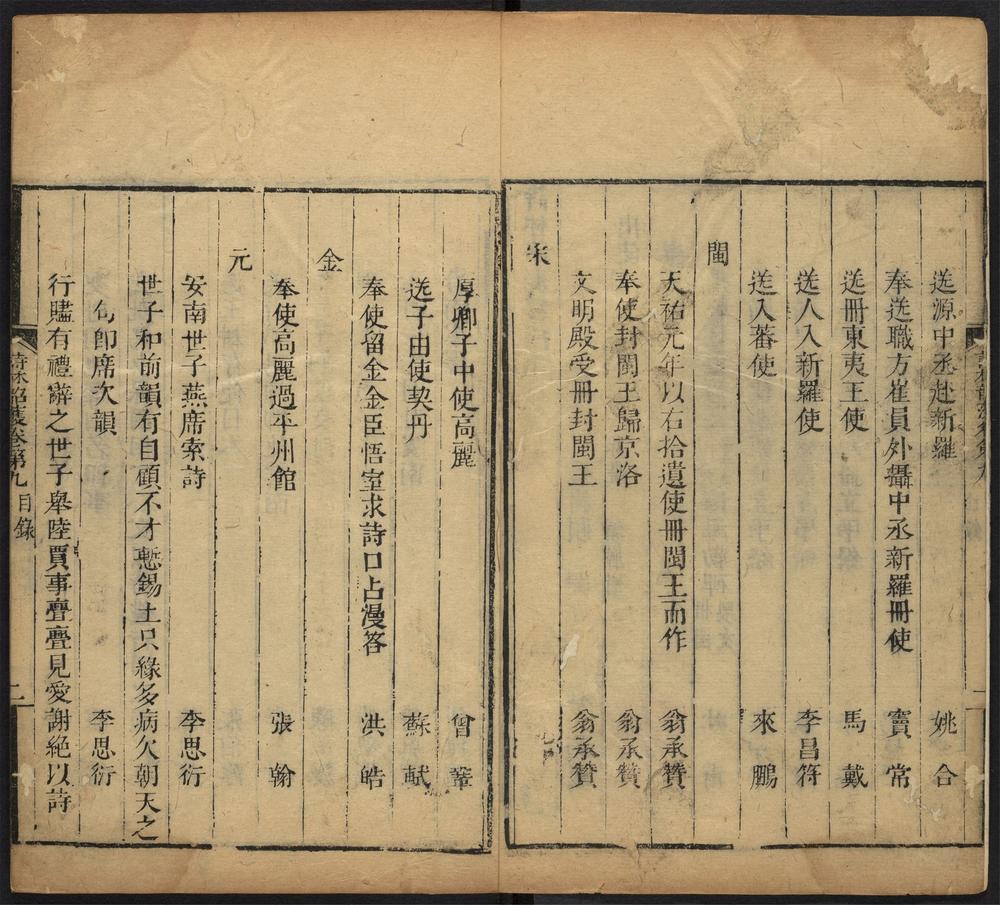 送源中丞赴新羅 姚合
奉送職方崔員外攝中丞新羅冊使 竇常
送冊東夷王使 馬戴
送人入新羅使 李昌符
送入蕃使 來鵬
閩
天祐元年以右拾遺使冊閩王而作 翁承贊
奉使封閩王歸京洛 翁承贊
文明殿受冊封閩王 翁承贊
宋
厚卿子中使高麗 曾鞏
送子由使契丹 蘇軾
奉使留金金臣悟室求詩口占漫答 洪皓
金
奉使高麗過平州館 張翰
元
安南世子燕席索詩 李思衍
世子和前韻有自顧不才慙錫土只緣多病欠朝天之
句卽席次韻 李思衍
行贐有禮辭之世子舉陸賈事亹亹見愛謝絕以詩
卷第九 目錄 二